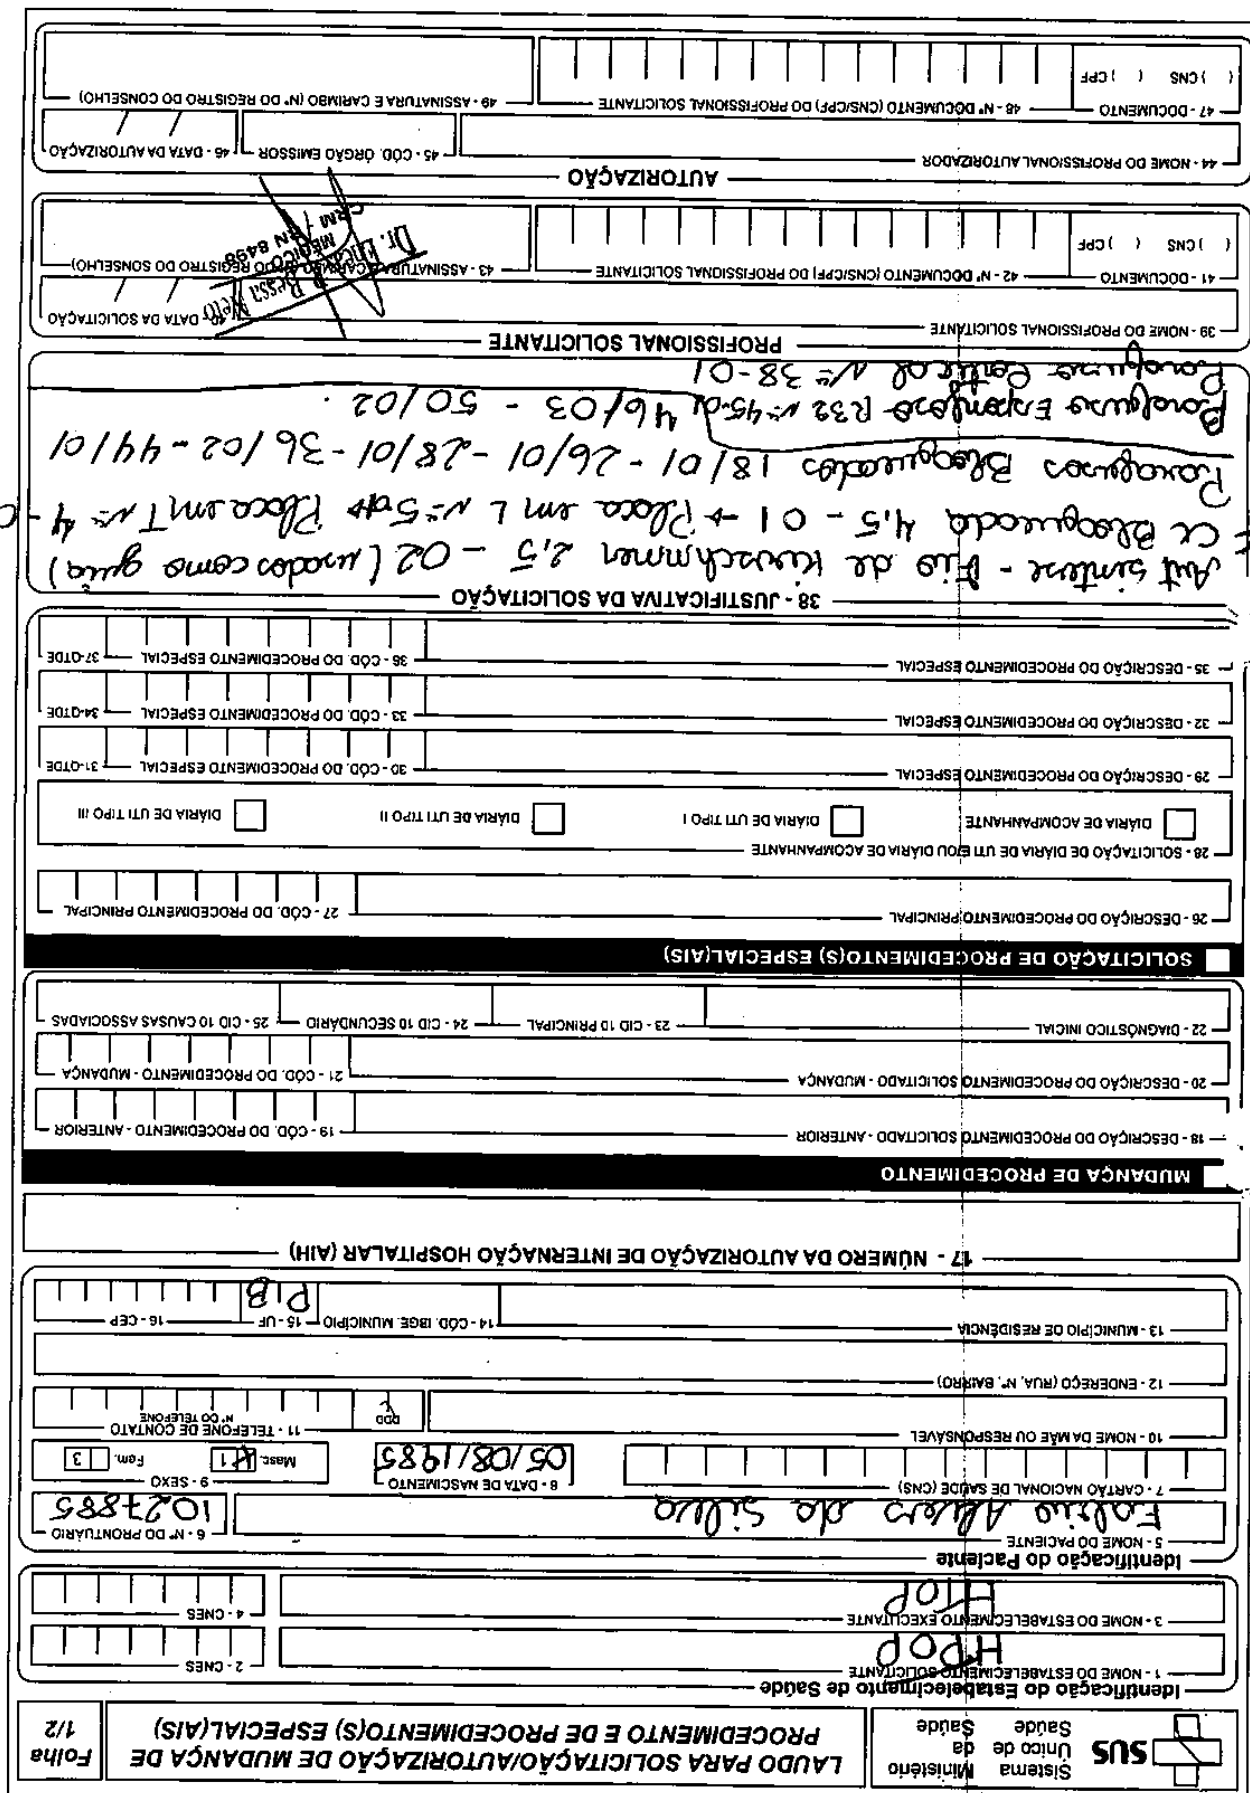 SUS
Sistema
Único de
Saúde
Ministério
da
Saúde
LAUDO PARA SOLICITAÇÃO/AUTORIZAÇÃO DE MUDANÇA DE
PROCEDIMENTO E DE PROCEDIMENTO(S) ESPECIAL(AIS)
Folha
1/2
Identificação do Estabelecimento de Saúde
1 - NOME DO ESTABELECIMENTO SOLICITANTE
2 - CNES
3 - NOME DO ESTABELECIMENTO EXECUTANTE
HTOP
4 - CNES
Identificação do Paciente
5 - NOME DO PACIENTE
Alves da Silva
6 - Nº DO PRONTUÁRIO
1027885
7 - CARTÃO NACIONAL DE SAÚDE (CNS)
8 - DATA DE NASCIMENTO
05/08/1985
9 - SEXO
Masc. 1
Fem. 3
10 - NOME DA MÃE OU RESPONSÁVEL
11 - TELEFONE DE CONTATO
DDD
Nº DO TELEFONE
12 - ENDEREÇO (RUA, Nº, BAIRRO)
13 - MUNICÍPIO DE RESIDÊNCIA
14 - CÓD. IBGE. MUNICÍPIO
15 - UF
PB
16 - CEP
17 - NÚMERO DA AUTORIZAÇÃO DE INTERNAÇÃO HOSPITALAR (AIH)
MUDANÇA DE PROCEDIMENTO
18 - DESCRIÇÃO DO PROCEDIMENTO SOLICITADO - ANTERIOR
19 - CÓD. DO PROCEDIMENTO - ANTERIOR
20 - DESCRIÇÃO DO PROCEDIMENTO SOLICITADO - MUDANÇA
21 - CÓD. DO PROCEDIMENTO - MUDANÇA
22 - DIAGNÓSTICO INICIAL
23 - CID 10 PRINCIPAL
24 - CID 10 SECUNDÁRIO
25 - CID 10 CAUSAS ASSOCIADAS
SOLICITAÇÃO DE PROCEDIMENTO(S) ESPECIAL(AIS)
26 - DESCRIÇÃO DO PROCEDIMENTO PRINCIPAL
27 - CÓD. DO PROCEDIMENTO PRINCIPAL
28 - SOLICITAÇÃO DE DIÁRIA DE UTI E/OU DIÁRIA DE ACOMPANHANTE
DIÁRIA DE ACOMPANHANTE
DIÁRIA DE UTI TIPO I
DIÁRIA DE UTI TIPO II
DIÁRIA DE UTI TIPO III
29 - DESCRIÇÃO DO PROCEDIMENTO ESPECIAL
30 - CÓD. DO PROCEDIMENTO ESPECIAL
31-QTDE
32 - DESCRIÇÃO DO PROCEDIMENTO ESPECIAL
33 - CÓD. DO PROCEDIMENTO ESPECIAL
34-QTDE
35 - DESCRIÇÃO DO PROCEDIMENTO ESPECIAL
36 - CÓD. DO PROCEDIMENTO ESPECIAL
37-QTDE
38 - JUSTIFICATIVA DA SOLICITAÇÃO
sintese - Fio de Kirschmmer 2,5 - 02 (usados como guia)
Bloqueada 4,5 - 01 → Placa em L nº 5 Placa em T nº 4
Parafusos Bloqueados 18/01 - 26/01 - 28/01 - 36/02 - 44/01
46/03 - 50/02.
Parafuso Esponjoso R32 nº 45-01
Parafuso Cortical nº 38-01
PROFISSIONAL SOLICITANTE
39 - NOME DO PROFISSIONAL SOLICITANTE
DATA DA SOLICITAÇÃO
/ /
41 - DOCUMENTO
( ) CNS ( ) CPF
42 - Nº DOCUMENTO (CNS/CPF) DO PROFISSIONAL SOLICITANTE
43 - ASSINATURA E CARIMBO (Nº DO REGISTRO DO CONSELHO)
Dr. Bessa Neto
MÉDICO
CRM / RN 8498
AUTORIZAÇÃO
44 - NOME DO PROFISSIONAL AUTORIZADOR
45 - CÓD. ÓRGÃO EMISSOR
46 - DATA DA AUTORIZAÇÃO
/ /
47 - DOCUMENTO
( ) CNS ( ) CPF
48 - Nº DOCUMENTO (CNS/CPF) DO PROFISSIONAL SOLICITANTE
49 - ASSINATURA E CARIMBO (Nº DO REGISTRO DO CONSELHO)